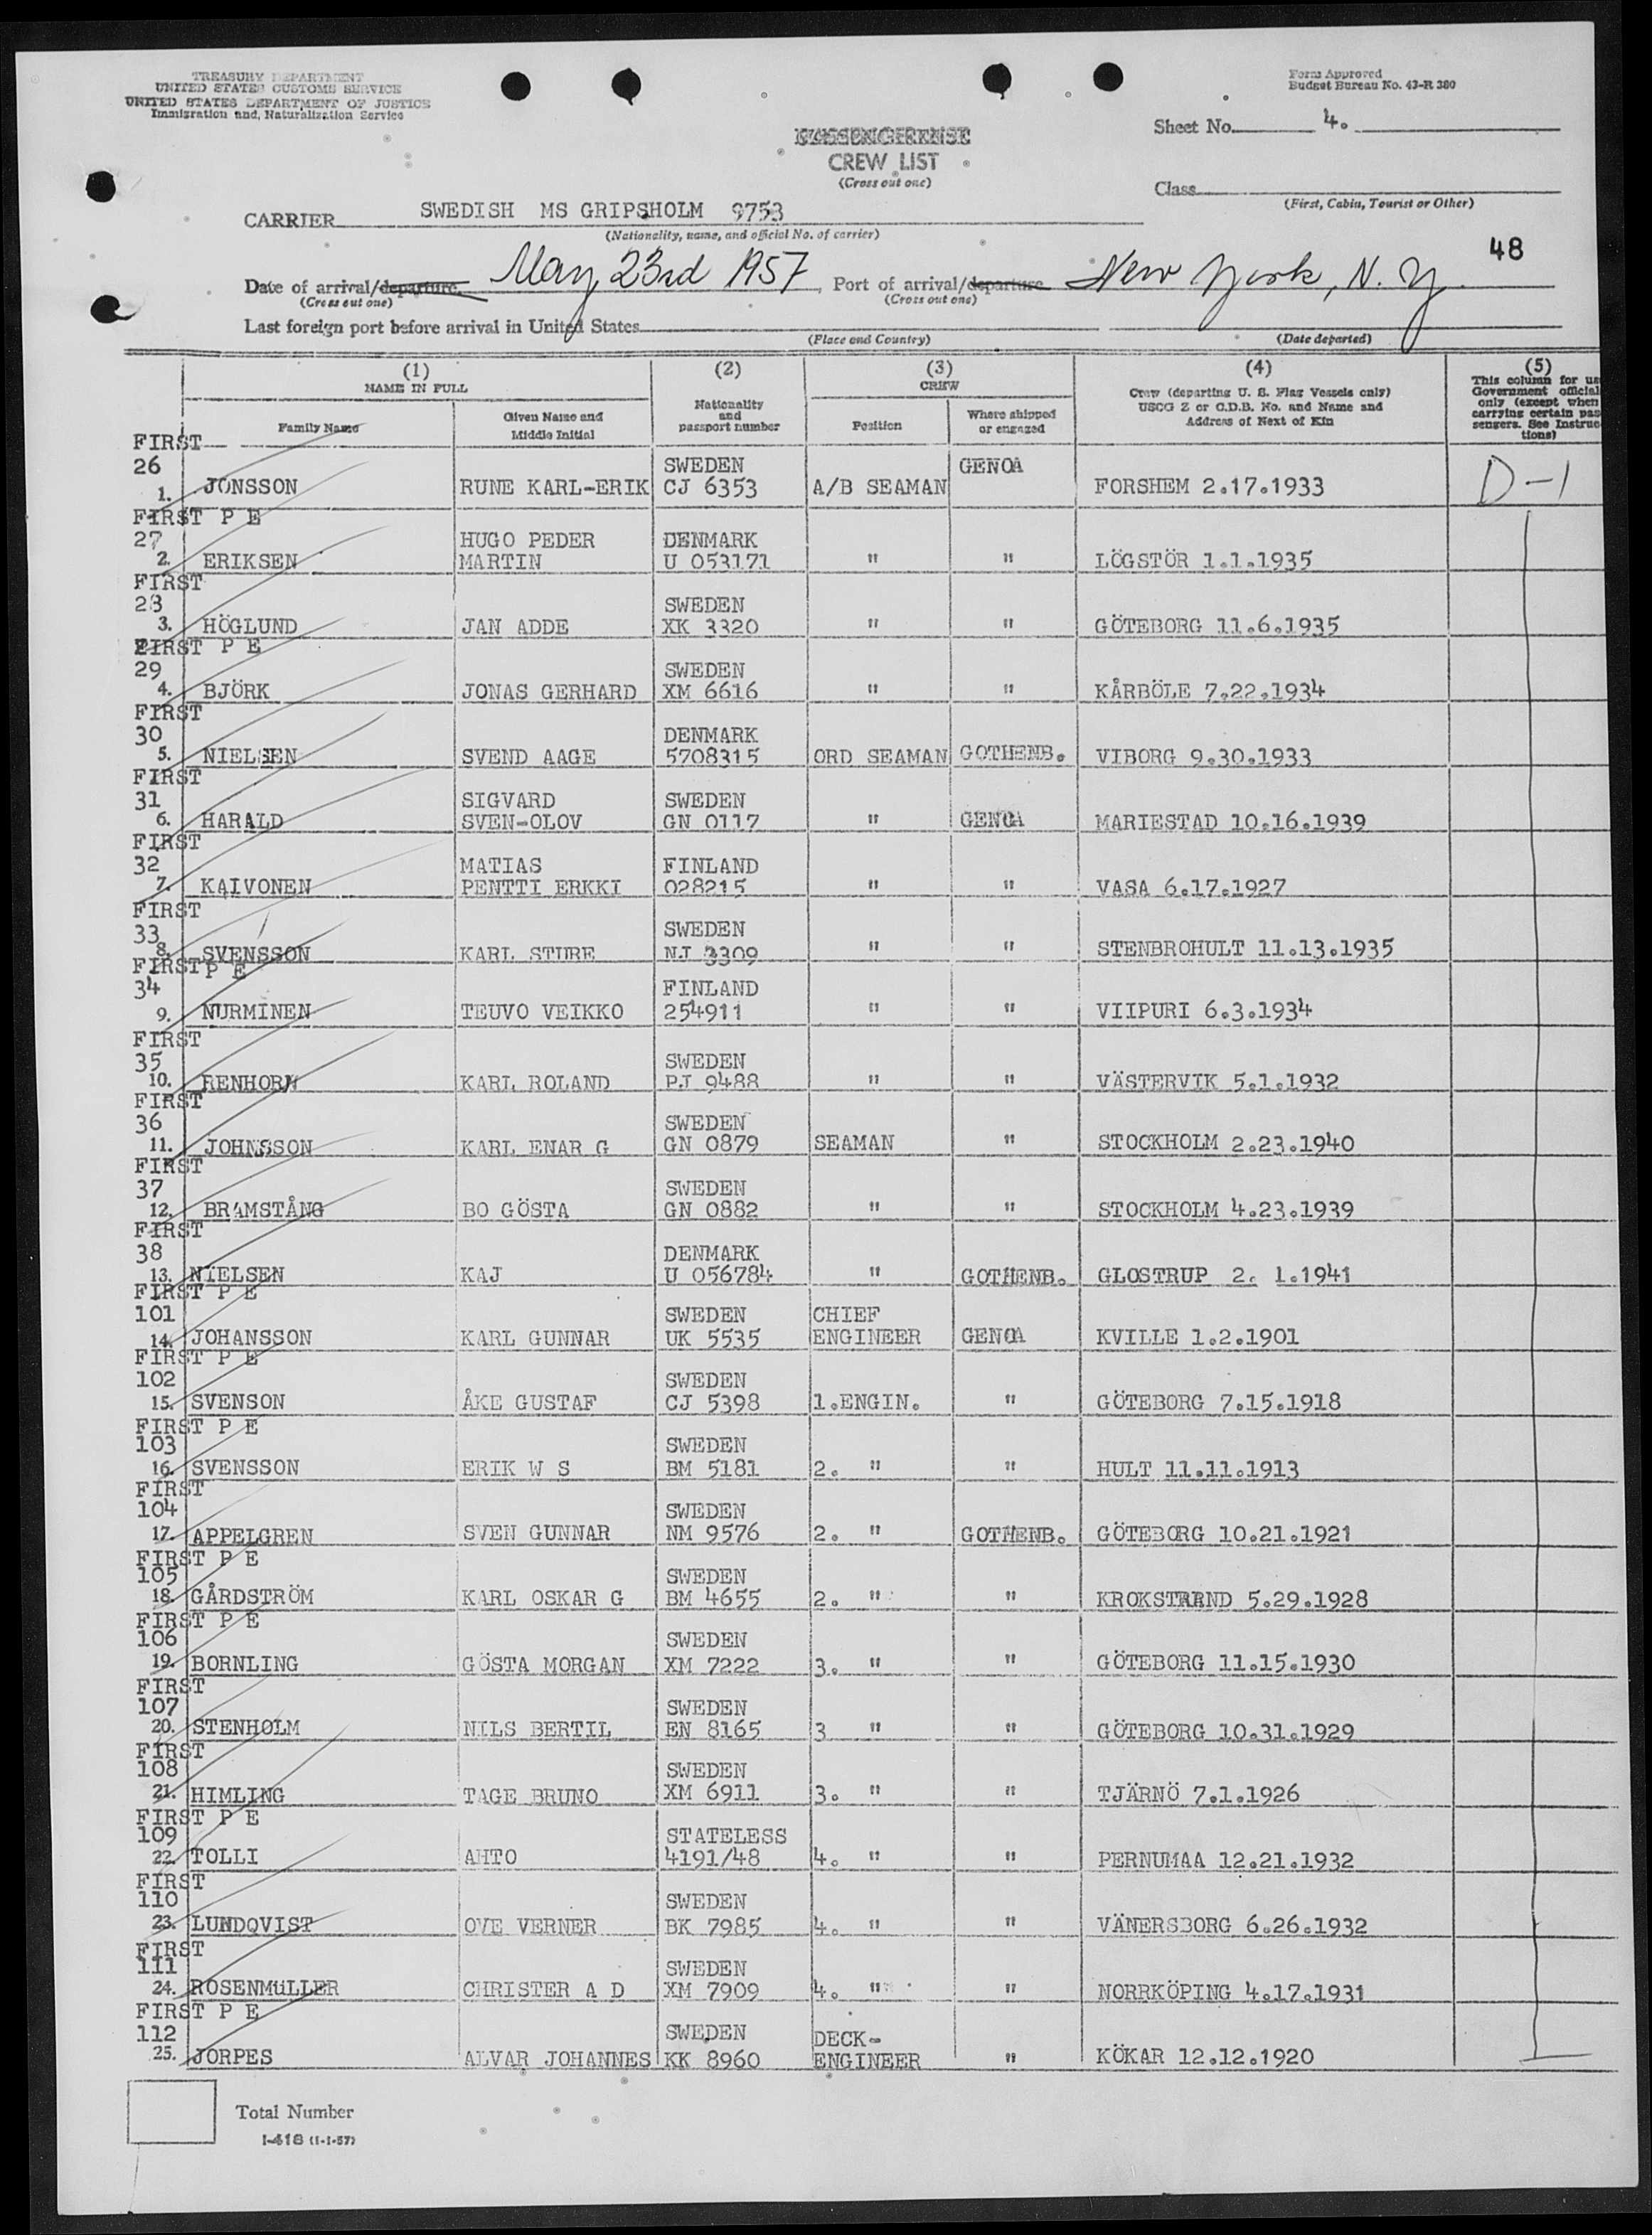 TREASURY DEPARTMENT
UNITED STATES CUSTOMS SERVICE
UNITED STATES DEPARTMENT OF JUSTICE
Immigration and Naturalization Service
Form Approved
Budget Bureau No. 43-R 380
Sheet No. 4.
CREW LIST
(Cross out one)
Class
(First, Cabin, Tourist or Other)
CARRIER SWEDISH MS GRIPSHOLM 9753
(Nationality, name, and official No. of carrier)
48
Date of arrival/departure. May 23rd 1957, Port of arrival/departure New York, N. Y.
(Cross out one) (Cross out one)
Last foreign port before arrival in United States
(Place and Country) (Date departed)
(1) NAME IN FULL
Family Name
Given Name and Middle Initial
(2) Nationality and passport number
(3) CREW
Position
Where shipped or engaged
(4) Crew (departing U. S. Flag Vessels only) USCG Z or C.D.B. No. and Name and Address of Next of Kin
(5) This column for use Government official only (except when carrying certain passengers. See Instructions)
FIRST
26 SWEDEN GENOA
1. JONSSON RUNE KARL-ERIK CJ 6353 A/B SEAMAN FORSHEM 2.17.1933 D-1
FIRST P E
27 HUGO PEDER DENMARK
2. ERIKSEN MARTIN U 053171 " " LÖGSTÖR 1.1.1935
FIRST
28 SWEDEN
3. HÖGLUND JAN ADDE XK 3320 " " GÖTEBORG 11.6.1935
FIRST P E
29 SWEDEN
4. BJÖRK JONAS GERHARD XM 6616 " " KÅRBÖLE 7.22.1934
FIRST
30 DENMARK
5. NIELSEN SVEND AAGE 5708315 ORD SEAMAN GOTHENB. VIBORG 9.30.1933
FIRST
31 SIGVARD SWEDEN
6. HARALD SVEN-OLOV GN 0117 " GENOA MARIESTAD 10.16.1939
FIRST
32 MATIAS FINLAND
7. KAIVONEN PENTTI ERKKI 028215 " " VASA 6.17.1927
FIRST
33 SWEDEN
8. SVENSSON KARL STURE NJ 3309 " " STENBROHULT 11.13.1935
FIRST P E
34 FINLAND
9. NURMINEN TEUVO VEIKKO 254911 " " VIIPURI 6.3.1934
FIRST
35 SWEDEN
10. RENHORN KARL ROLAND PJ 9488 " " VÄSTERVIK 5.1.1932
FIRST
36 SWEDEN
11. JOHNSSON KARL ENAR G GN 0879 SEAMAN " STOCKHOLM 2.23.1940
FIRST
37 SWEDEN
12. BRAMSTÅNG BO GÖSTA GN 0882 " " STOCKHOLM 4.23.1939
FIRST
38 DENMARK
13. NIELSEN KAJ U 056784 " GOTHENB. GLOSTRUP 2. 1.1941
FIRST P E
101 SWEDEN CHIEF
14. JOHANSSON KARL GUNNAR UK 5535 ENGINEER GENOA KVILLE 1.2.1901
FIRST P E
102 SWEDEN
15. SVENSON ÅKE GUSTAF CJ 5398 1.ENGIN. " GÖTEBORG 7.15.1918
FIRST P E
103 SWEDEN
16. SVENSSON ERIK W S BM 5181 2. " " HULT 11.11.1913
FIRST
104 SWEDEN
17. APPELGREN SVEN GUNNAR NM 9576 2. " GOTHENB. GÖTEBORG 10.21.1921
FIRST P E
105 SWEDEN
18. GÅRDSTRÖM KARL OSKAR G BM 4655 2. " " KROKSTRAND 5.29.1928
FIRST P E
106 SWEDEN
19. BORNLING GÖSTA MORGAN XM 7222 3. " " GÖTEBORG 11.15.1930
FIRST
107 SWEDEN
20. STENHOLM NILS BERTIL EN 8165 3 " " GÖTEBORG 10.31.1929
FIRST
108 SWEDEN
21. HIMLING TAGE BRUNO XM 6911 3. " " TJÄRNÖ 7.1.1926
FIRST P E
109 STATELESS
22. TOLLI AHTO 4191/48 4. " " PERNUMAA 12.21.1932
FIRST
110 SWEDEN
23. LUNDQVIST OVE VERNER BK 7985 4. " " VÄNERSBORG 6.26.1932
FIRST
111 SWEDEN
24. ROSENMüLLER CHRISTER A D XM 7909 4. " " NORRKÖPING 4.17.1931
FIRST P E
112 SWEDEN DECK-
25. JORPES ALVAR JOHANNES KK 8960 ENGINEER " KÖKAR 12.12.1920
Total Number
I-418 (1-1-57)